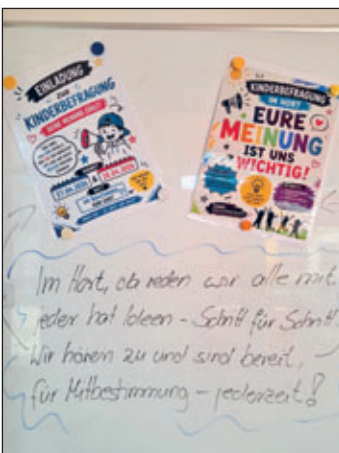 EINLADUNG
ZUR
KINDERBEFRAGUNG
DEINE MEINUNG ZÄHLT!
KINDERBEFRAGUNG
IM HORT
EURE
MEINUNG
IST UNS
WICHTIG!
Im Hort, da reden wir alle mit,
jeder hat Ideen - Schritt für Schritt
Wir hören zu und sind bereit,
für Mitbestimmung - jederzeit!